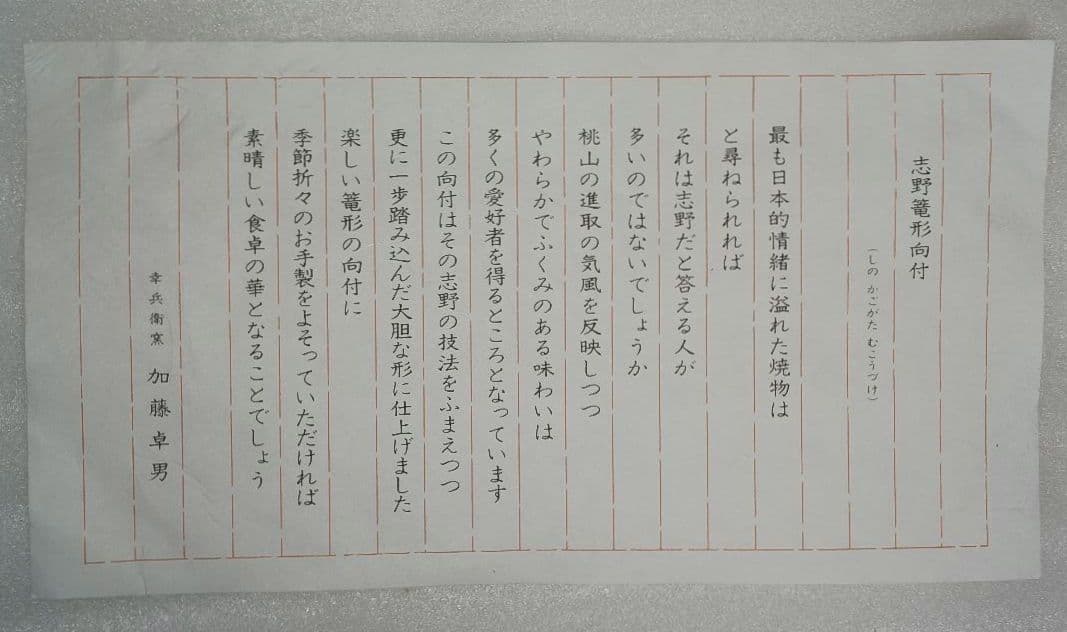 志野篭形向付
（しの かごがた むこうづけ）
最も日本的情緒に溢れた焼物は
と尋ねられれば
それは志野だと答える人が
多いのではないでしょうか
桃山の進取の気風を反映しつつ
やわらかでふくみのある味わいは
多くの愛好者を得るところとなっています
この向付はその志野の技法をふまえつつ
更に一歩踏み込んだ大胆な形に仕上げました
楽しい篭形の向付に
季節折々のお手製をよそっていただければ
素晴しい食卓の華となることでしょう
幸兵衛窯 加藤卓男